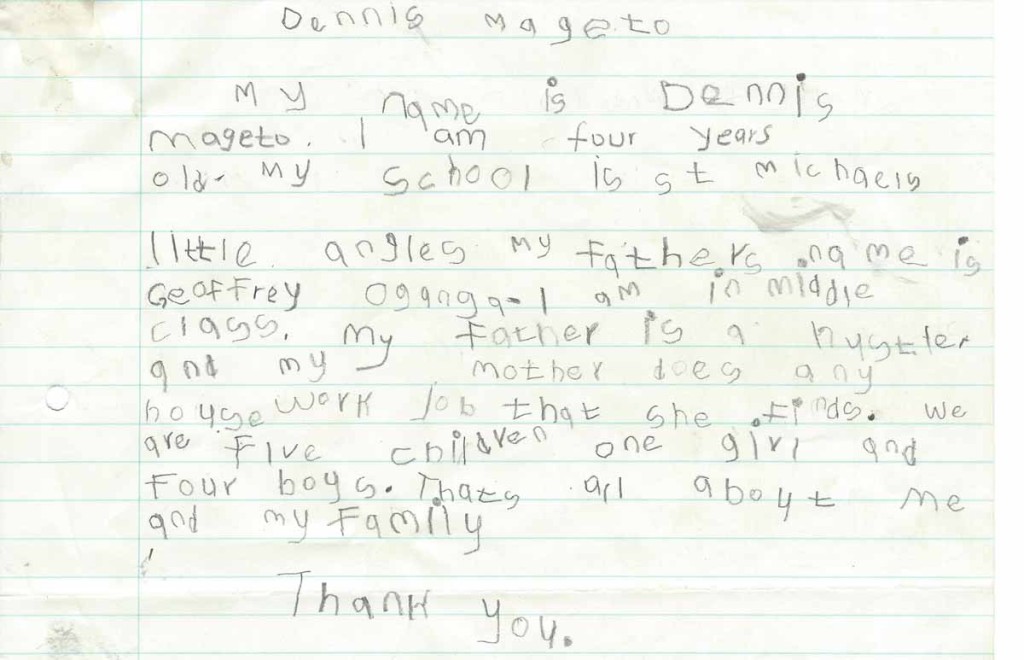 Dennis Mageto
My name is Dennis
mageto. I am four years
old. My school is st michaels
little angles my fathers name is
Geoffrey Oganga-I am in middle
class. My Father is a hustler
and my mother does any
house work job that she finds. we
are five children one girl and
Four boys. Thats all about me
and my Family
Thank you.